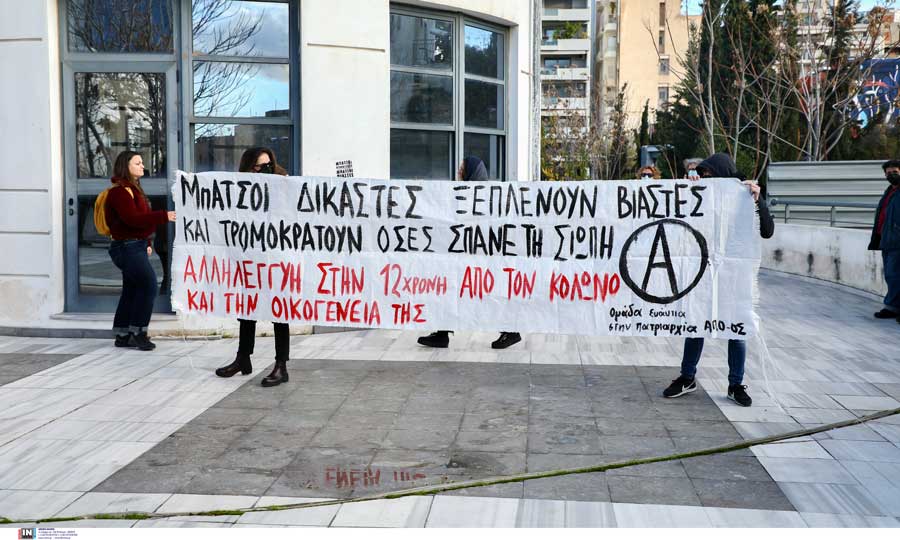 ΜΠΑΤΣΟΙ ΔΙΚΑΣΤΕΣ ΞΕΠΛΕΝΟΥΝ ΒΙΑΣΤΕΣ
ΚΑΙ ΤΡΟΜΟΚΡΑΤΟΥΝ ΟΣΕΣ ΣΠΑΝΕ ΤΗ ΣΙΩΠΗ
ΑΛΛΗΛΕΓΓΥΗ ΣΤΗΝ 12ΧΡΟΝΗ ΑΠΟ ΤΟΝ ΚΟΛΩΝΟ
ΚΑΙ ΤΗΝ ΟΙΚΟΓΕΝΕΙΑ ΤΗΣ
Α
Ομάδα ενάντια
στην πατριαρχία ΑΠΟ-ΟΣ
IN